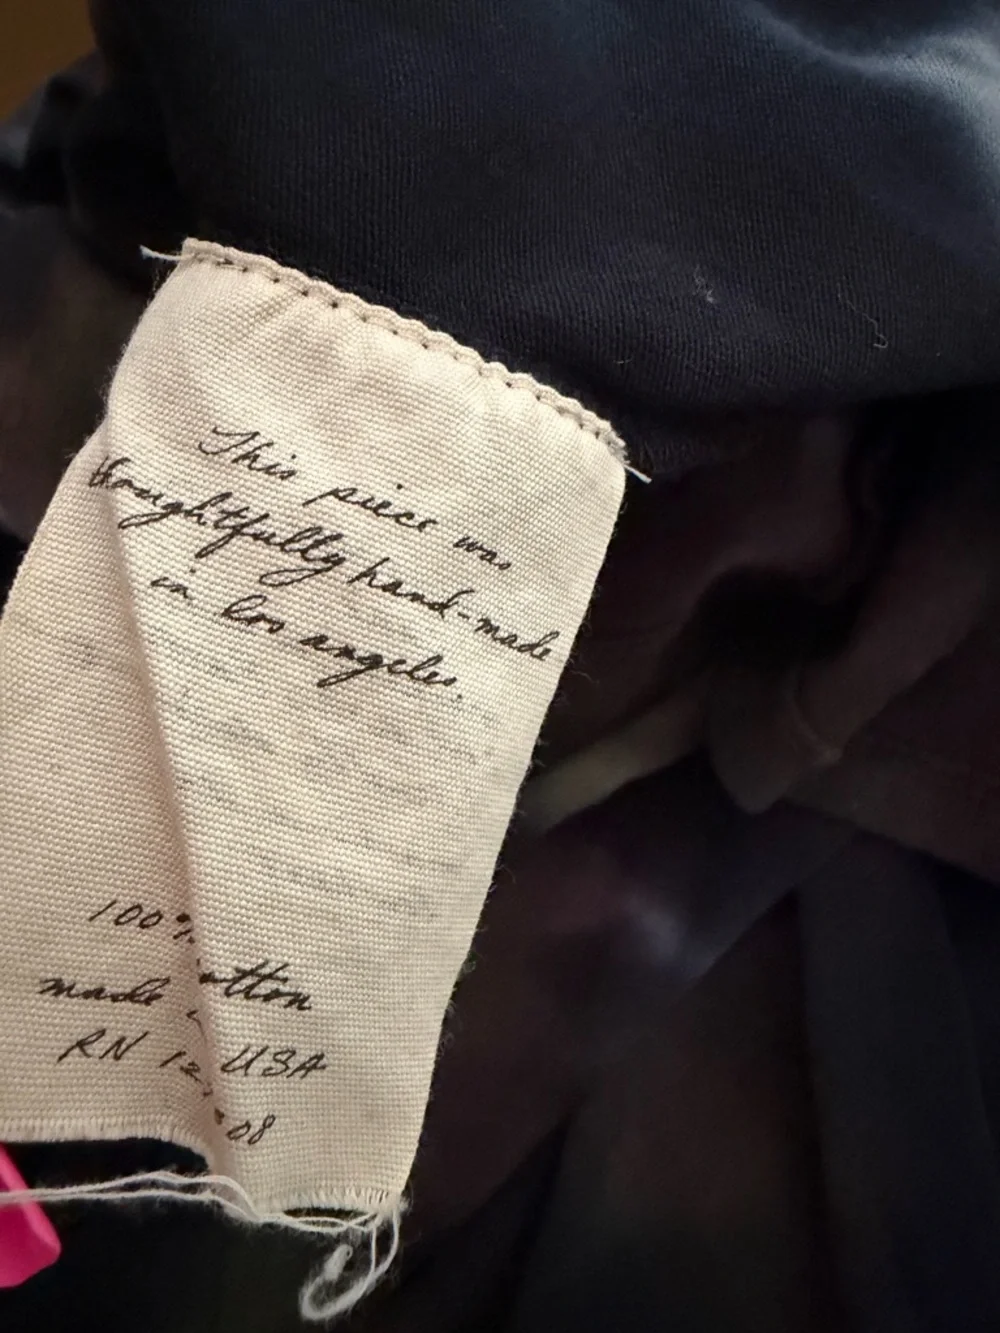 This piece was
thoughtfully hand-made
in los angeles.
100% otton
made USA
RN 12 08